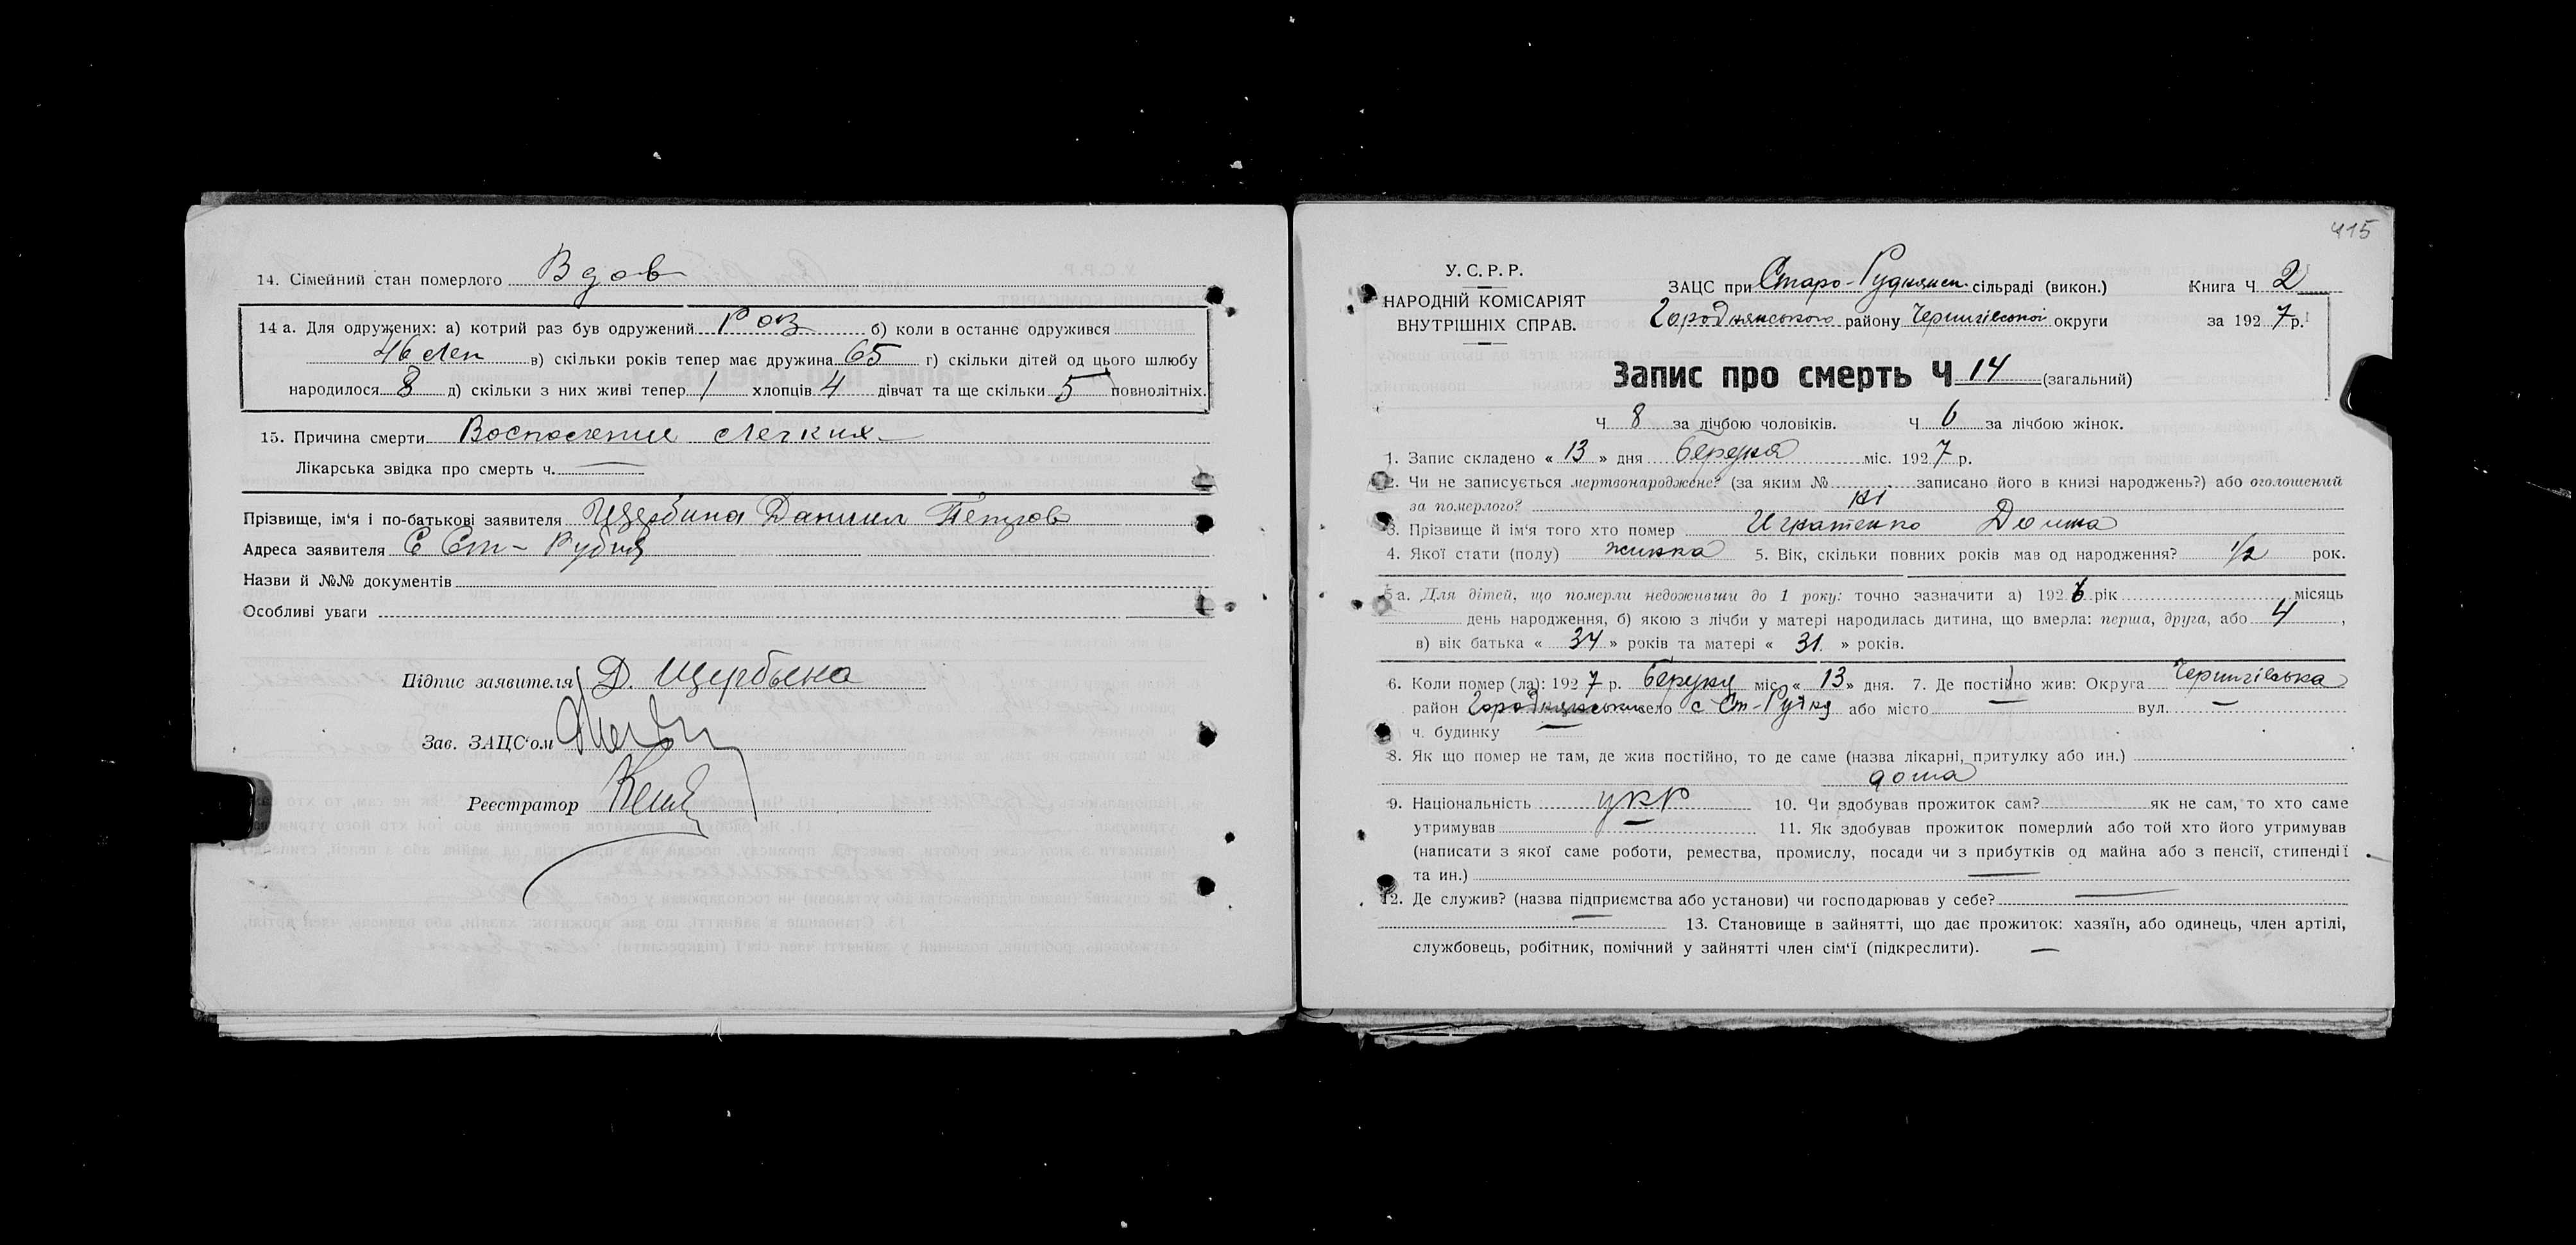 14. Сімейний стан померлого Вдов
14 а. Для одружених: а) котрий раз був одружений 1 раз б) коли в останнє одружився
46 лет в) скільки років тепер має дружина 65 г) скільки дітей од цього шлюбу
народилося 8 д) скільки з них живі тепер 1 хлопців 4 дівчат та ще скільки 5 повнолітніх.
15. Причина смерти Воспосление легких
Лікарська звідка про смерть ч. —
Прізвище, ім'я і по-батькові заявителя Щербина Даниил Петров
Адреса заявителя С Ст-Рудня
Назви й №№ документів
Особливі уваги
Підпис заявителя Д. Щербына
Зав. ЗАЦС'ом
Реєстратор
415
У. С. Р. Р.
НАРОДНІЙ КОМІСАРІЯТ
ВНУТРІШНІХ СПРАВ.
ЗАЦС при Старо-Руднянск. сільраді (викон.) Книга Ч 2
Городнянського району Чернигівської округи за 1927 р.
Запис про смерть Ч 14 (загальний)
Ч 8 за лічбою чоловіків. Ч 6 за лічбою жінок.
1. Запис складено « 13 » дня Березня міс. 1927 р.
2. Чи не записується мертвонароджене? (за яким № записано його в книзі народжень?) або оголошений
за померлого? ні
3. Прізвище й ім'я того хто помер Игнатенко
4. Якої стати (полу) жинка 5. Вік, скільки повних років мав од народження? 1/2 рок.
5 а. Для дітей, що померли недоживши до 1 року: точно зазначити а) 1926 рік місяць
день народження, б) якою з лічби у матері народилась дитина, що вмерла: перша, друга, або 4,
в) вік батька « 34 » років та матері « 31 » років.
6. Коли помер (ла): 1927 р. Березня міс « 13 » дня. 7. Де постійно жив: Округа Чернигівська
район Городнянський село с Ст-Рудня або місто — вул. —
ч. будинку —
8. Як що помер не там, де жив постійно, то де саме (назва лікарні, притулку або ин.)
дома
9. Національність укр 10. Чи здобував прожиток сам? як не сам, то хто саме
утримував — 11. Як здобував прожиток померлий або той хто його утримував
(написати з якої саме роботи, ремества, промислу, посади чи з прибутків од майна або з пенсії, стипендії
та ин.) —
12. Де служив? (назва підприємства або установи) чи господарював у себе? —
— 13. Становище в зайнятті, що дає прожиток: хазяїн, або одинець, член артілі,
службовець, робітник, помічний у зайнятті член сім'ї (підкреслити). —